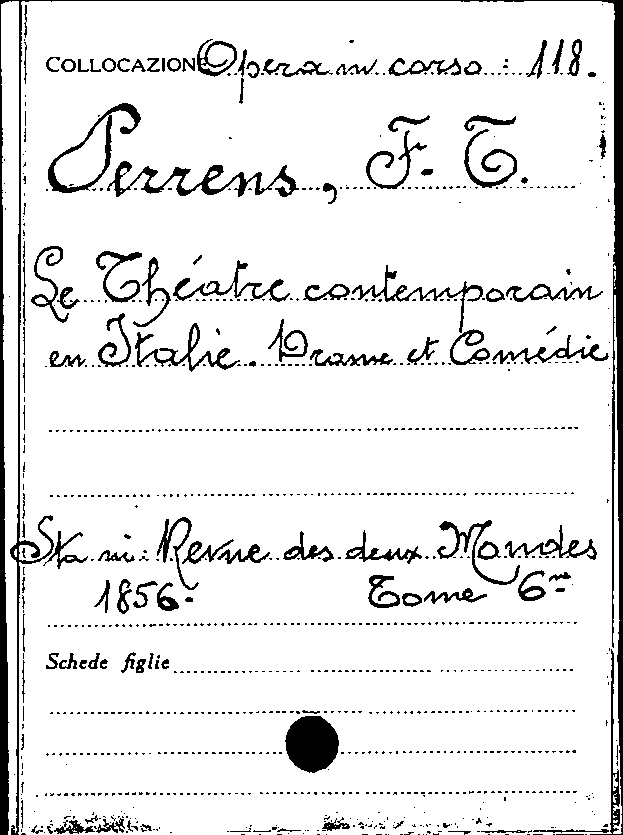 COLLOCAZIONE Opera in corso : 118.
Perrens, F. T.
Le Théatre contemporain
en Italie. Drame et Comédie
Sta in: Revue des deux Mondes
1856. Tome 6me
Schede figlie